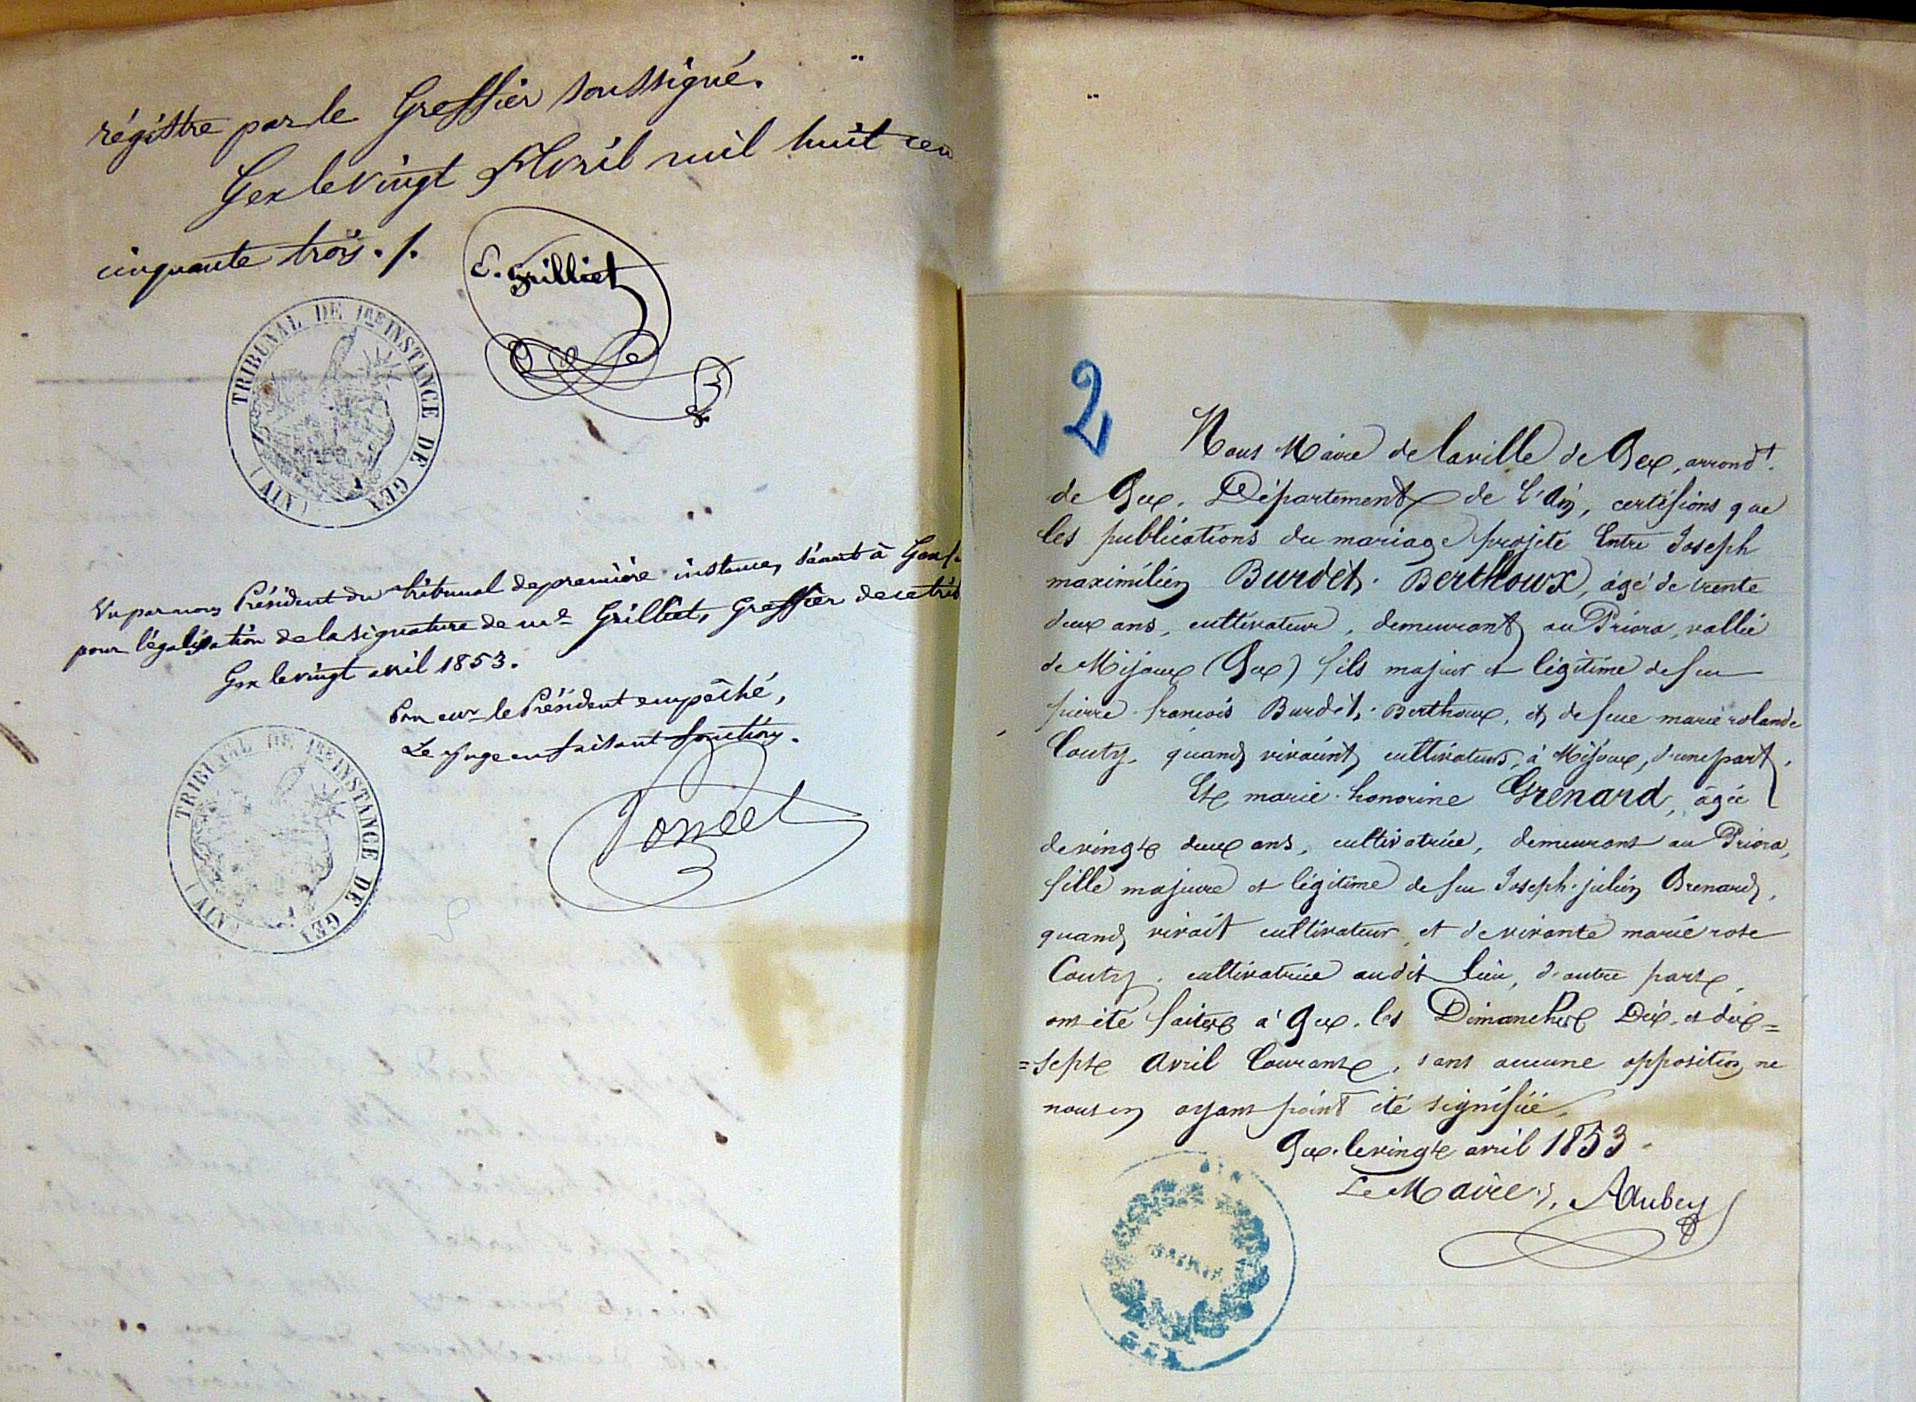 régistre par le Greffier soussigné.
Gex le vingt Avril mil huit cen
cinquante trois ./.
E. Grilliet
TRIBUNAL DE 1RE INSTANCE DE GEX (AIN)
Vu par nous Président du tribunal de première instance, séant à Gex,
pour légalisation de la signature de me Grilliet, Greffier de ce trib
Gex le vingt avril 1853.
Pour le Président empêché,
Le Juge en faisant fonction.
Poncet
TRIBUNAL DE 1RE INSTANCE DE GEX (AIN)
2
Nous Maire de la ville de Gex, arrondt.
de Gex, Département de l'Ain, certifions que
les publications du mariage projeté Entre Joseph
maximilien Burdet-Berthoux, âgé de trente
deux ans, cultivateur, demeurant au Priora, vallée
de Mijoux (Gex) fils majeur et légitime de feu
pierre-françois Burdet-Berthoux, et de feue marie rolande
Couty, quand vivaient, cultivateurs, à Mijoux, d'une part,
Et marie-honorine Grenard, âgée
de vingt deux ans, cultivatrice, demeurant au Priora,
fille majeure et légitime de feu Joseph-julien Grenard,
quand vivait cultivateur, et de vivante marie rose
Couty, cultivatrice audit lieu, d'autre part,
ont été faites à Gex, les Dimanches Dix, et dix=
=sept Avril Courant, sans aucune opposition ne
nous en ayant point été signifiée.
Gex, le vingt avril 1853.
Le Maire,
MAIRIE
GEX